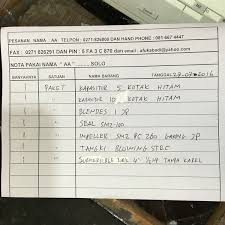 PESANAN NAMA : AA TELPON : 0271 826800 DAN HAND PHONE : 081 667 4447
FAX : 0271 826291 DAN PIN : 5 FA 3 C 870 email : afukabadi@yahoo.com
NOTA PAKAI NAMA " AA " ........ SOLO
BANYAKNYA SATUAN NAMA BARANG TANGGAL 29-07-2016
1 PAKET KAPASITOR 5 KOTAK HITAM
1 " KAPASITOR 10 KOTAK HITAM
1 " BLENDES 1 JP
1 " SEAL SM2-100
1 " IMPELLER SM2 PC 260 JP
1 " TANGKI BLOWING STEC
1 " SUBMERSIBLE 4" TANPA KABEL